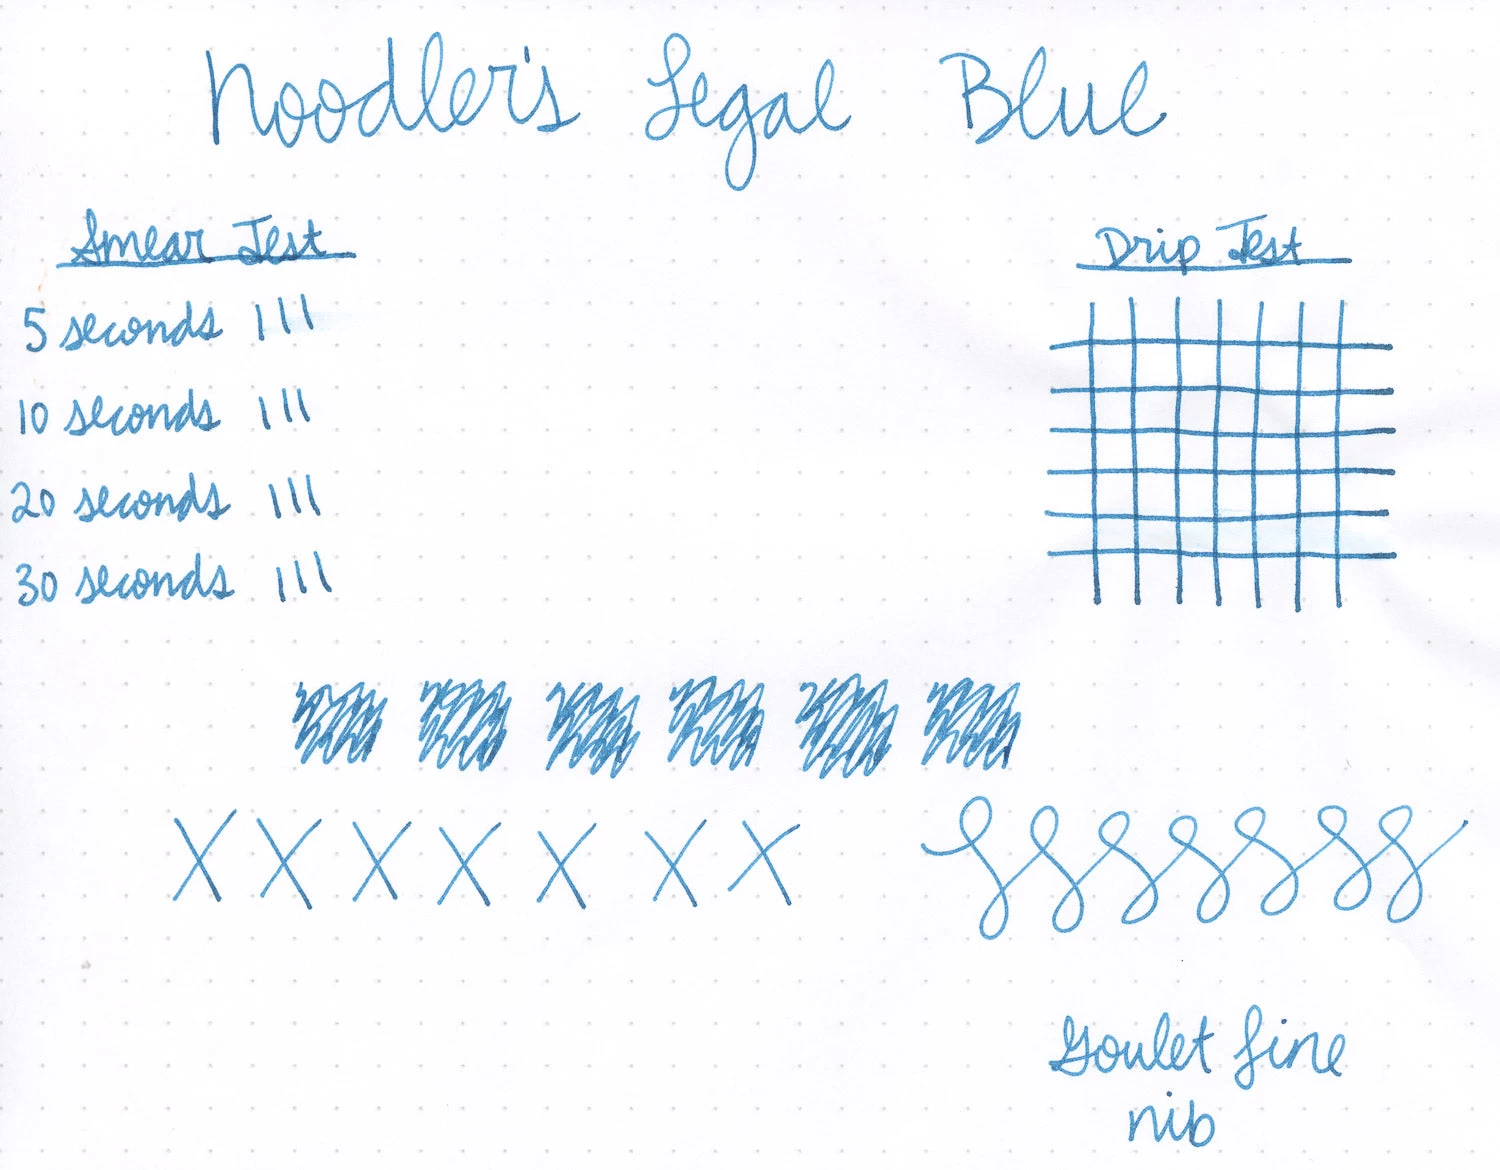 Noodler's Legal Blue
Smear Test
Drip Test
5 seconds
10 seconds
20 seconds
30 seconds
X X X X X X X
Goulet fine
nib